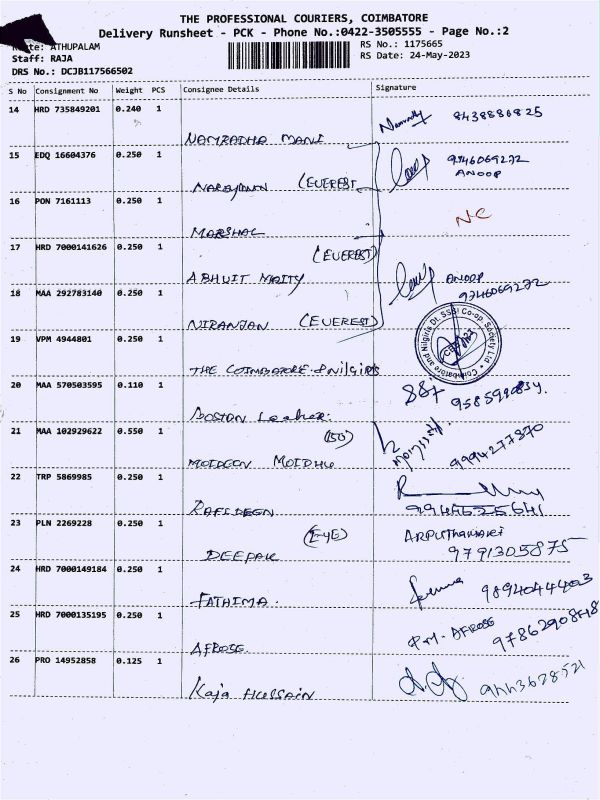 THE PROFESSIONAL COURIERS, COIMBATORE
Delivery Runsheet - PCK - Phone No.:0422-3505555 - Page No.:2
ATHUPALAM
RS No.: 1175665
Staff: RAJA
RS Date: 24-May-2023
DRS No.: DCJB117566502
S No Consignment No Weight PCS Consignee Details Signature
14 HRD 735849201 0.240 1
8438886825
NAMRADHA MANI
15 EDQ 16604376 0.250 1
9746069272
ANOOP
NARAYANN (EVEREST
16 PON 7161113 0.250 1
NC
MARSHAL
(EVEREST)
17 HRD 7000141626 0.250 1
ABHIJIT MAITY
ANOOP
9746069272
18 MAA 292783140 0.250 1
NIRANJAN (EVEREST)
19 VPM 4944801 0.250 1
Coimbatore and Nilgiris Dt. SSI Co-op. Society Ltd
THE COIMBATORE & Nilgiris
20 MAA 570503595 0.110 1
BOSTON Leather.
21 MAA 102929622 0.550 1
(ISU)
MOIDEEN MOIDHU
9994277870
22 TRP 5869985 0.250 1
RAFIDEEN
9944625641
23 PLN 2269228 0.250 1
(I-YE)
DEEPAK
9791305875
24 HRD 7000149184 0.250 1
FATHIMA.
9894044403
25 HRD 7000135195 0.250 1
P.M. AFROSE
9786290848
AFROSE.
26 PRO 14952858 0.125 1
9443628521
Kaja HUSSAIN